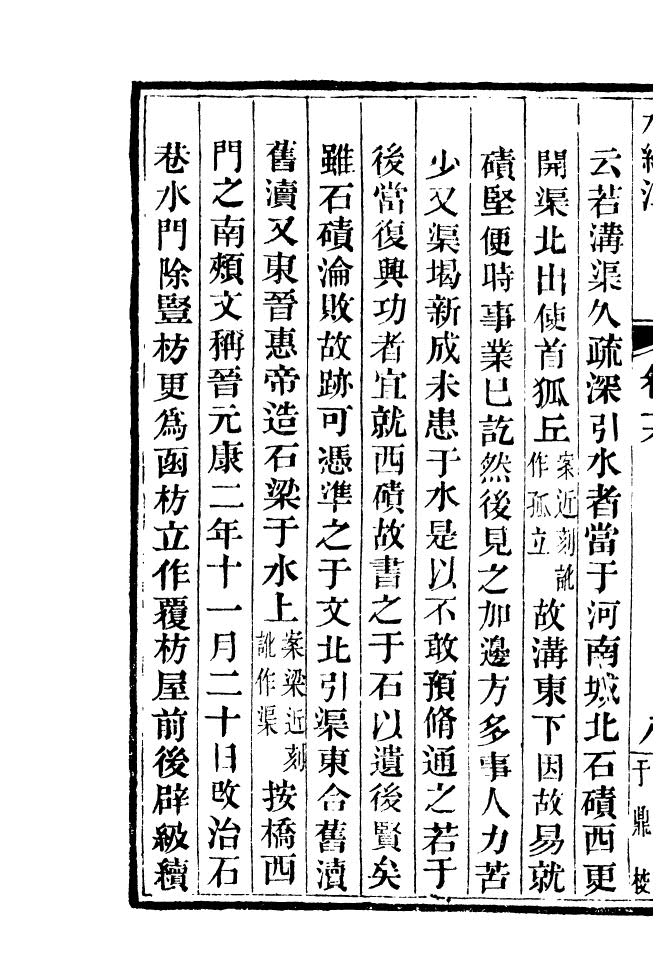 云若溝渠久疏深引水者當于河南城北石磧西更
開渠北出使首狐丘案近刻訛作孤立故溝東下因故易就
磧堅便時事業已訖然後見之加邊方多事人力苦
少又渠堨新成未患于水是以不敢預脩通之若于
後當復興功者宜就西磧故書之于石以遺後賢矣
雖石磧淪敗故跡可憑準之于文北引渠東合舊瀆
舊瀆又東晉惠帝造石梁于水上案梁近刻訛作渠按橋西
門之南頰文稱晉元康二年十一月二十日改治石
巷水門除豎枋更為函枋立作覆枋屋前後辟級續